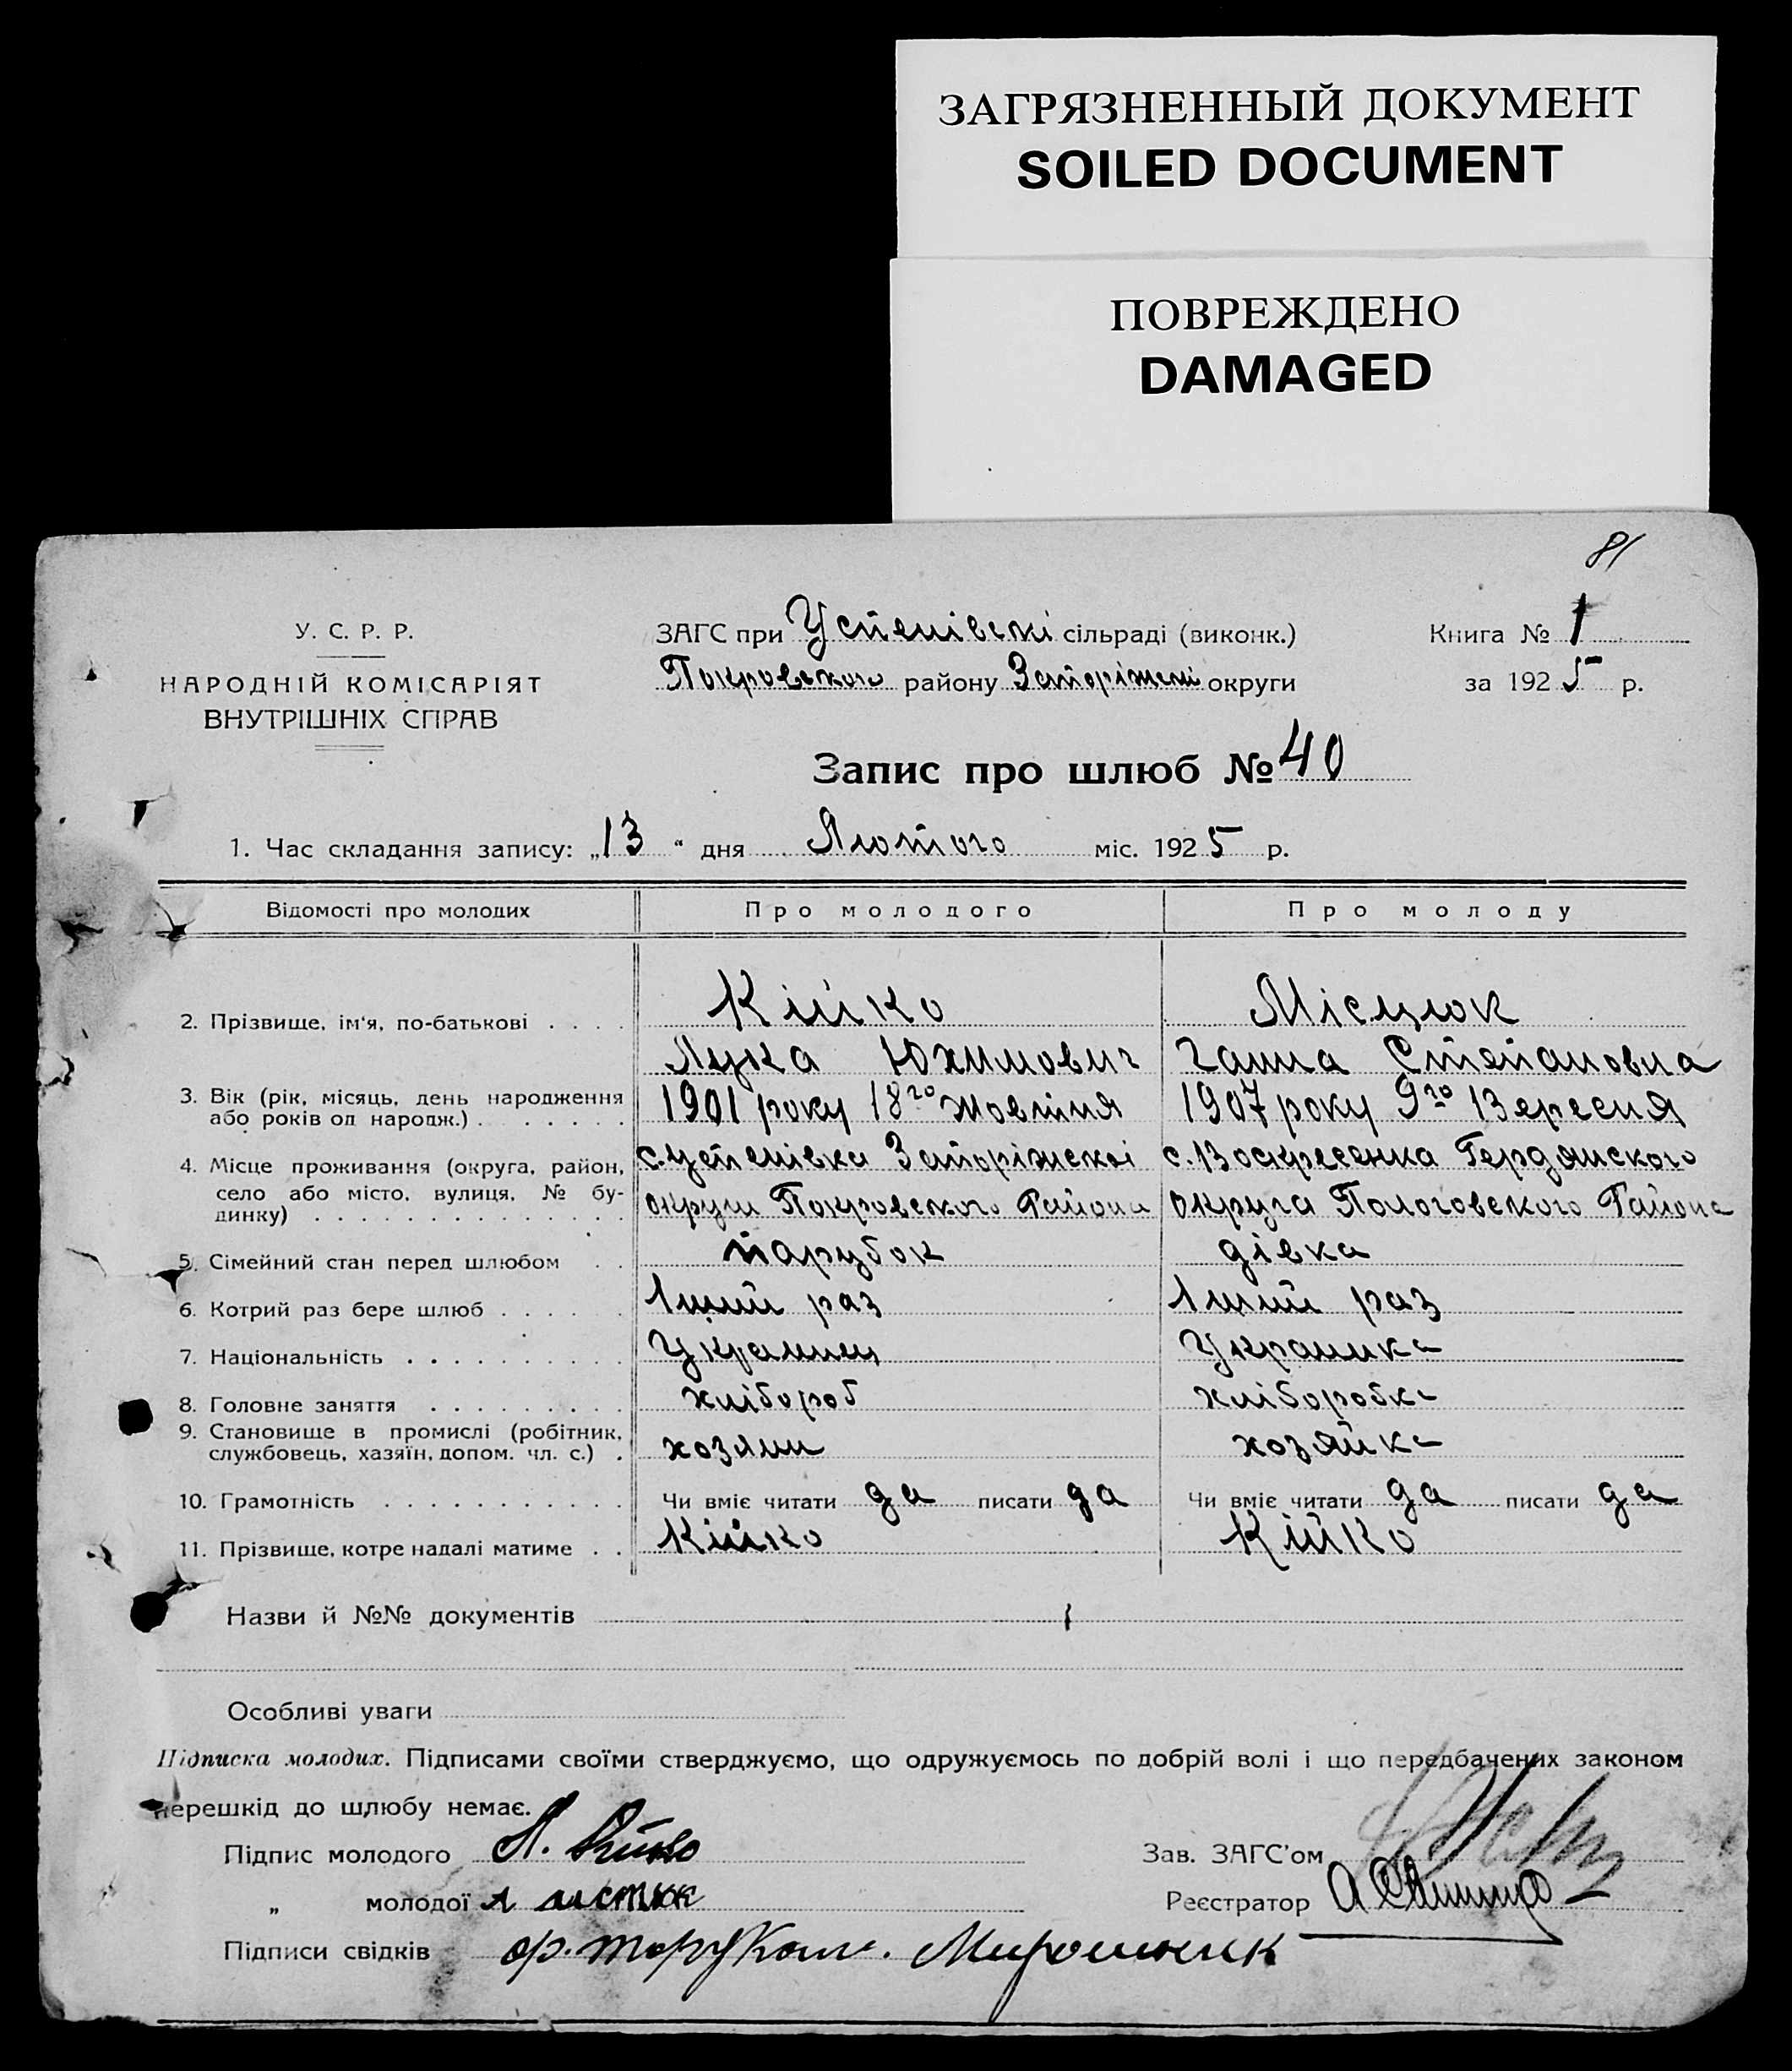 ЗАГРЯЗНЕННЫЙ ДОКУМЕНТ
SOILED DOCUMENT
ПОВРЕЖДЕНО
DAMAGED
81
У. С. Р. Р.
НАРОДНІЙ КОМІСАРІЯТ
ВНУТРІШНІХ СПРАВ
ЗАГС при Успенівскі сільраді (виконк.)
Покровського району Запоріжскі округи
Книга № 1
за 1925 р.
Запис про шлюб № 40
1. Час складання запису: „13“ дня Лютого міс. 1925 р.
Відомості про молодих Про молодого Про молоду
2. Прізвище, ім‘я, по-батькові . . . . Кійко
Лука Юхимович Ганна Степановна
3. Вік (рік, місяць, день народження 1901 року 18го Жовтня 1907 року 9го Вересня
або років од народж.) . . . . . .
4. Місце проживання (округа, район, с. Успенівка Запоріжскої с. Воскресенка Бердянского
село або місто, вулиця, № бу-
динку) . . . . . . . . . . . . . . округи Покровского Района округа Пологовского Района
5. Сімейний стан перед шлюбом . . парубок дівка
6. Котрий раз бере шлюб . . . . . 1ший раз 1ший раз
7. Національність . . . . . . . . . Украинец Украинка
8. Головне заняття . . . . . . . . . хлібороб хліборобка
9. Становище в промислі (робітник, хозяин хозяйка
службовець, хазяїн, допом. чл. с.) .
10. Грамотність . . . . . . . . . . . Чи вміє читати да писати да Чи вміє читати да писати да
11. Прізвище, котре надалі матиме . . Кійко Кійко
Назви й №№ документів
Особливі уваги
Підписка молодих. Підписами своїми стверджуємо, що одружуємось по добрій волі і що передбачених законом
перешкід до шлюбу немає.
Підпис молодого Л. Кійко
Зав. ЗАГС’ом
„ молодої
Реєстратор
Підписи свідків Мирошник